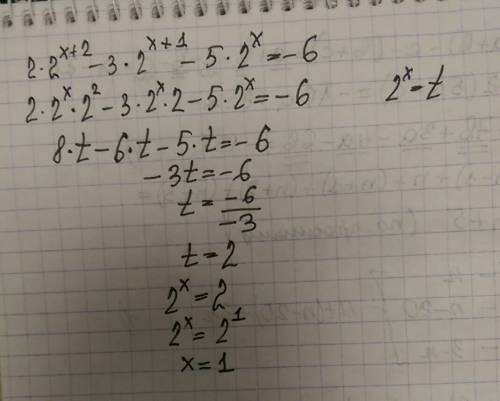 2·2^{x+2} - 3·2^{x+1} - 5·2^x = -6
2·2^x·2^2 - 3·2^x·2 - 5·2^x = -6 2^x = t
8·t - 6·t - 5·t = -6
-3t = -6
t = \frac{-6}{-3}
t = 2
2^x = 2
2^x = 2^1
x = 1